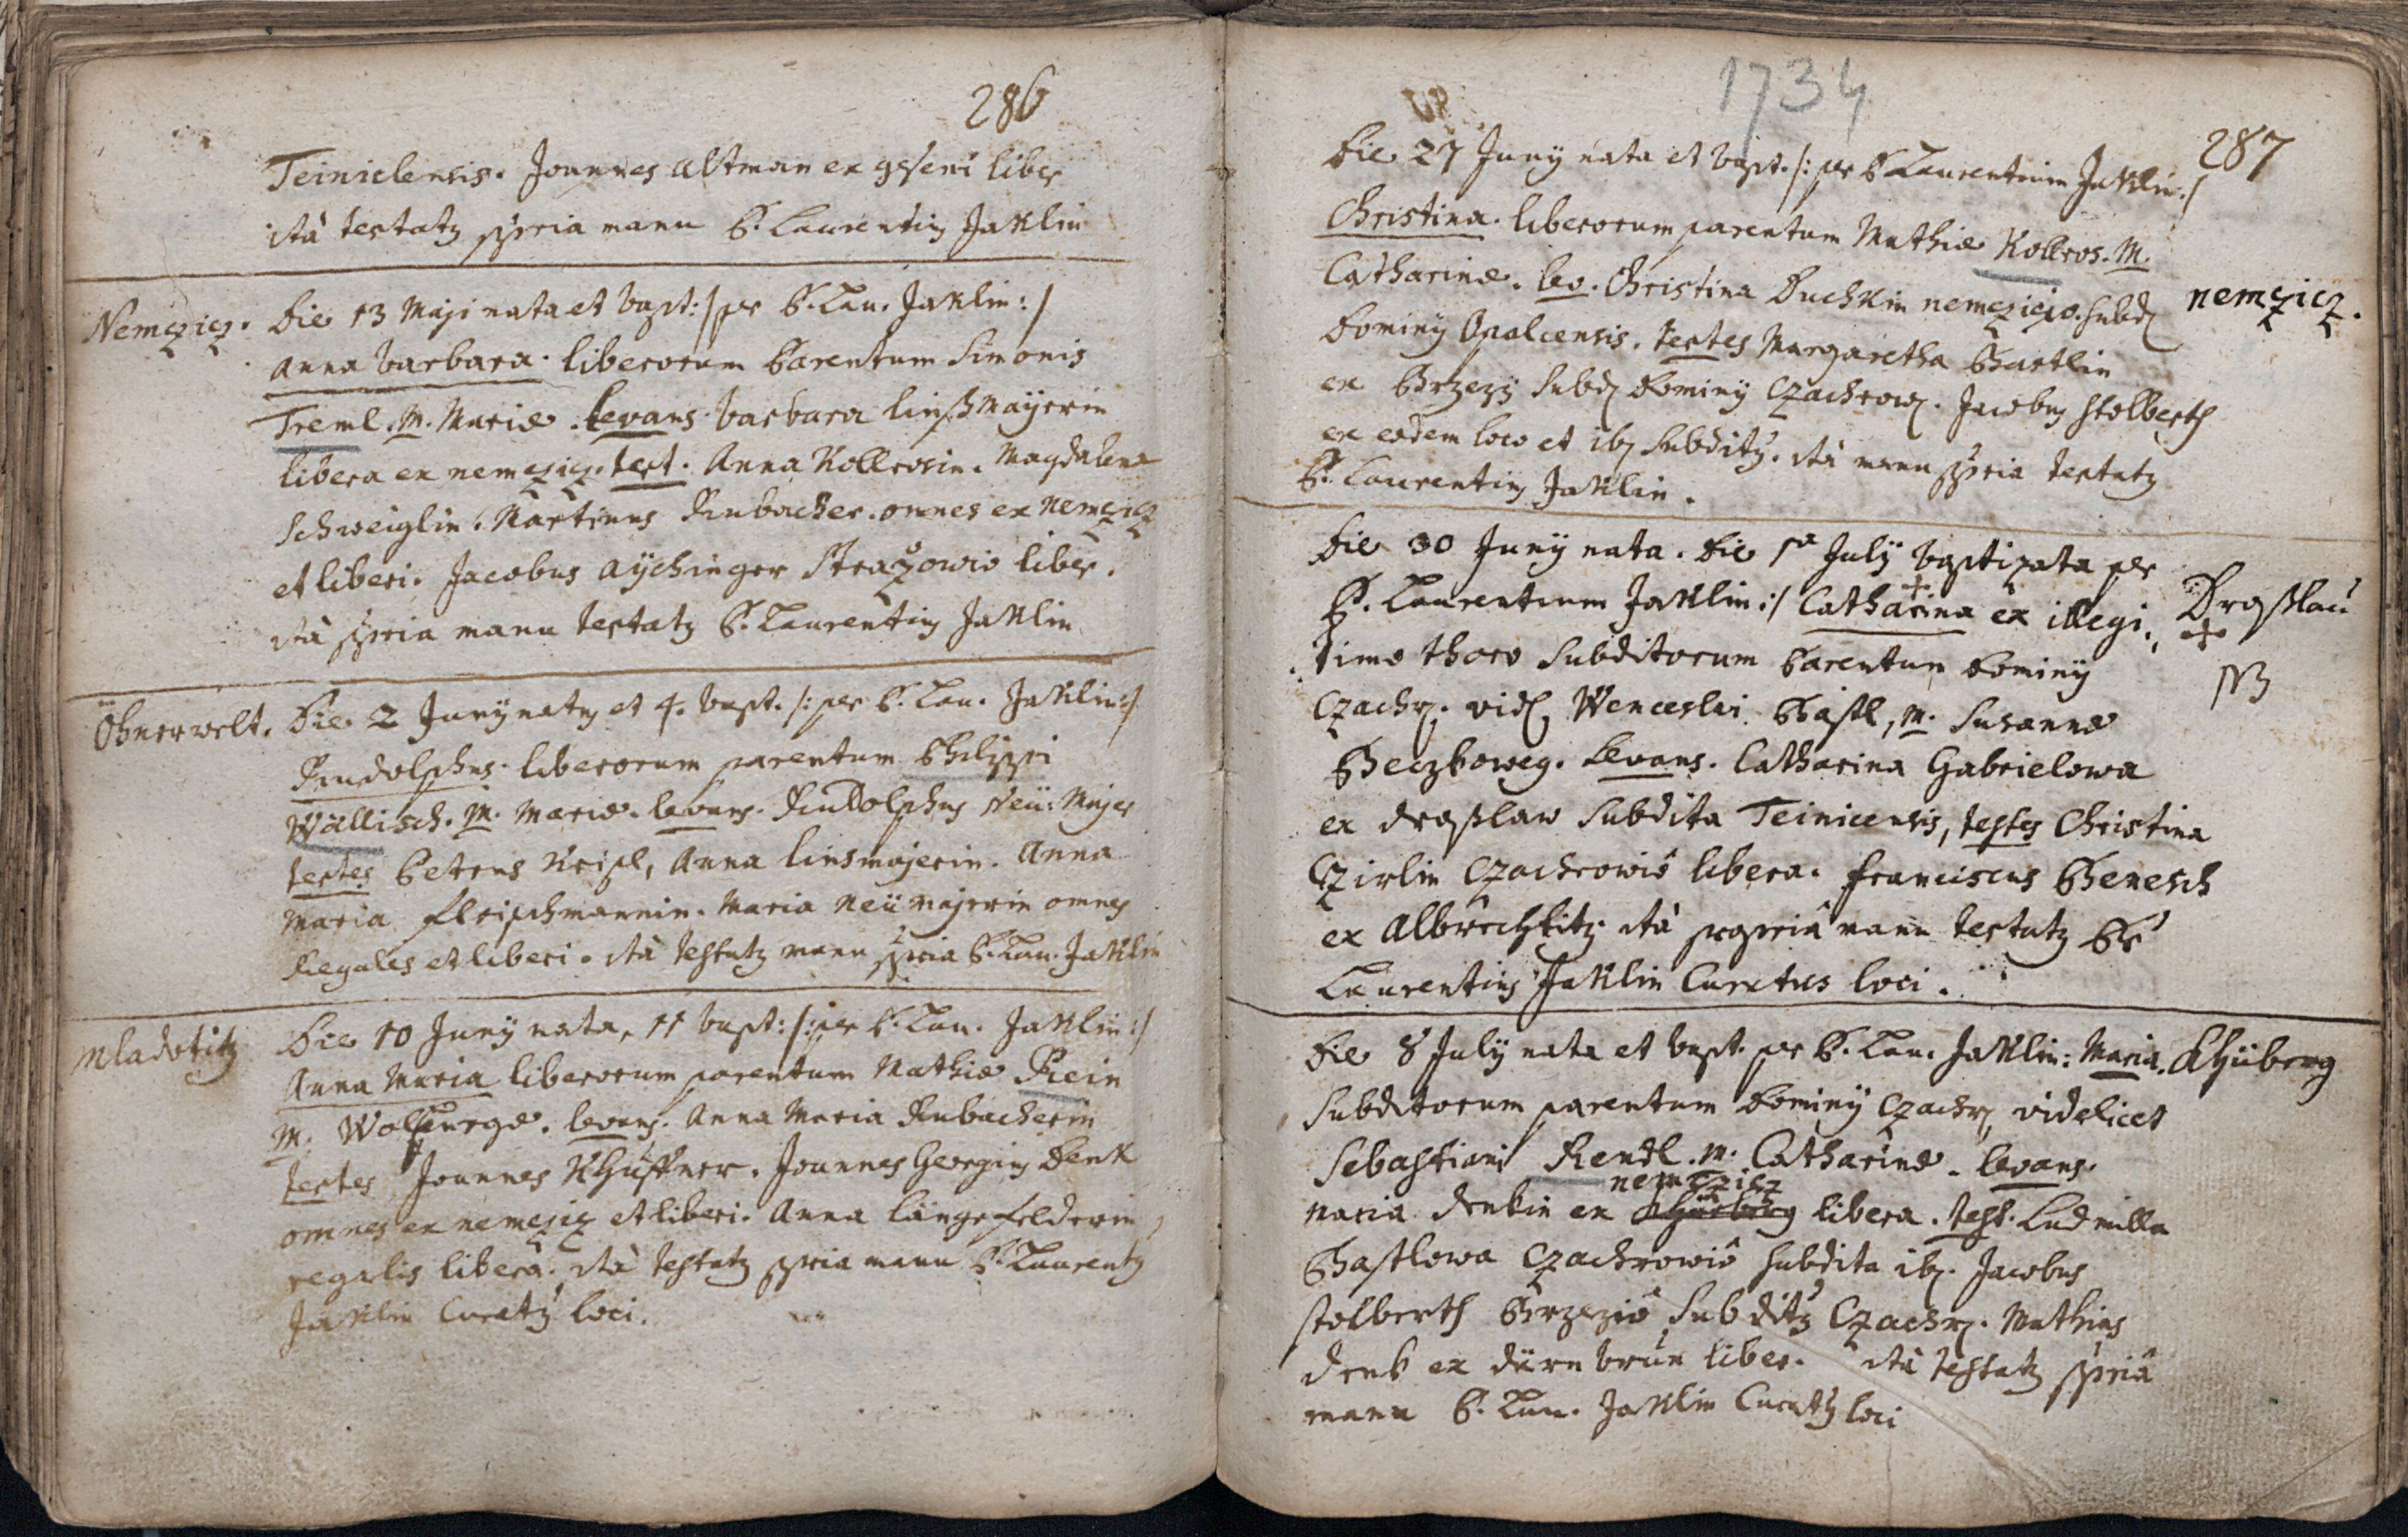 286
Teinicensis. Joannes Altman ex gseni liber
ità testatq ppria manu P. Laurentiq Jaklin
Nemczicz. Die 13 Maji nata et bapt: /per P. Lau. Jaklin :/
Anna barbara. liberorum Parentum Simonis
Treml. M. Mariæ. Levans. barbara linsmaÿerin
libera ex nemczicz. test. Anna Kollrosin. Magdalena
Schweiglin. Martinus Rubacher. omnes ex Nemczicz
et liberi. Jacobus Aÿchinger Strazowiô liber.
ità ppria manu testatq P. Laurentiq Jaklin
Öhnerwelt. Die 2 Junÿ natq et 4. bapt. /: per P. Lau. Jaklin :/
Rudolphus. liberorum parentum Philippi
Wällisch. M. Mariæ. levans. Rudolphus Neü: Majer
testes Petrus Kripl, Anna linsmajerin. Anna
Maria Fleischmannin. Maria Neümajerin omnes
Regales et liberi. ità testatq manu ppria P. Lau. Jaklin
Mladotitz Die 10 Junÿ nata, 11 bapt: /: per P. Lau. Jaklin :/
Anna Maria liberorum parentum Mathiæ Rein
M. Walburgæ. levans. Anna Maria Rubacherin
testes Joannes Khüffner. Joannes Georgiq Denk
omnes ex nemczicz et liberi. Anna Längefelderin
regalis liberà. ità testatq ppria manu P. Laurentq
Jaklin Curatq loci.
1734
287
Die 27 Junÿ nata et bapt. /: per P. Laurentium Jaklin :/
Christina. liberorum parentum Mathiæ Kollros. M.
Catharinæ. lev. Christina Duchkin nemczicio. subd nemczicz.
Dominÿ Opalcensis. testes Margaretha Bartlin
ex Brzezÿ subd Dominÿ Czachrow. Jacobq Stolberth
ex eodem loco et ib subditq. ità manu ppria testatq
P. Laurentiq Jaklin.
Die 30 Junÿ nata. Die 1a Julÿ baptizata per
P. Laurentium Jaklin :/ Catharina ex illegi, Droslau
timo thoro Subditorum Parentum Dominÿ NB
Czachr. vid Wenceslai Bastl, M. Susannæ
Beczkoweg. Levans. Catharina Gabrielowa
ex droslaw Subdita Teinicensis, testes Christina
Czirlin Czachrowiô libera. Franciscus Benesch
ex Albrechtitz. ità propriâ manu testatq Pr
Laurentius Jaklin Curatus loci.
Die 8 Julÿ nata et bapt. per P. Lau. Jaklin: Maria. Khüberg
Subditorum parentum Dominÿ Czachr, videlicet
Sebastiani Rendl. M. Catharinæ. levans.
nemczicz
Maria Denkin ex Khüberg libera. test. Ludmilla
Bastlowa Czachrowiô subdita ib. Jacobus
Stolberth Brzeziô subditq Czachr. Mathias
Denk ex Dürnbrun liber. ità testatq ppriâ
manu P. Lau. Jaklin Curatq loci